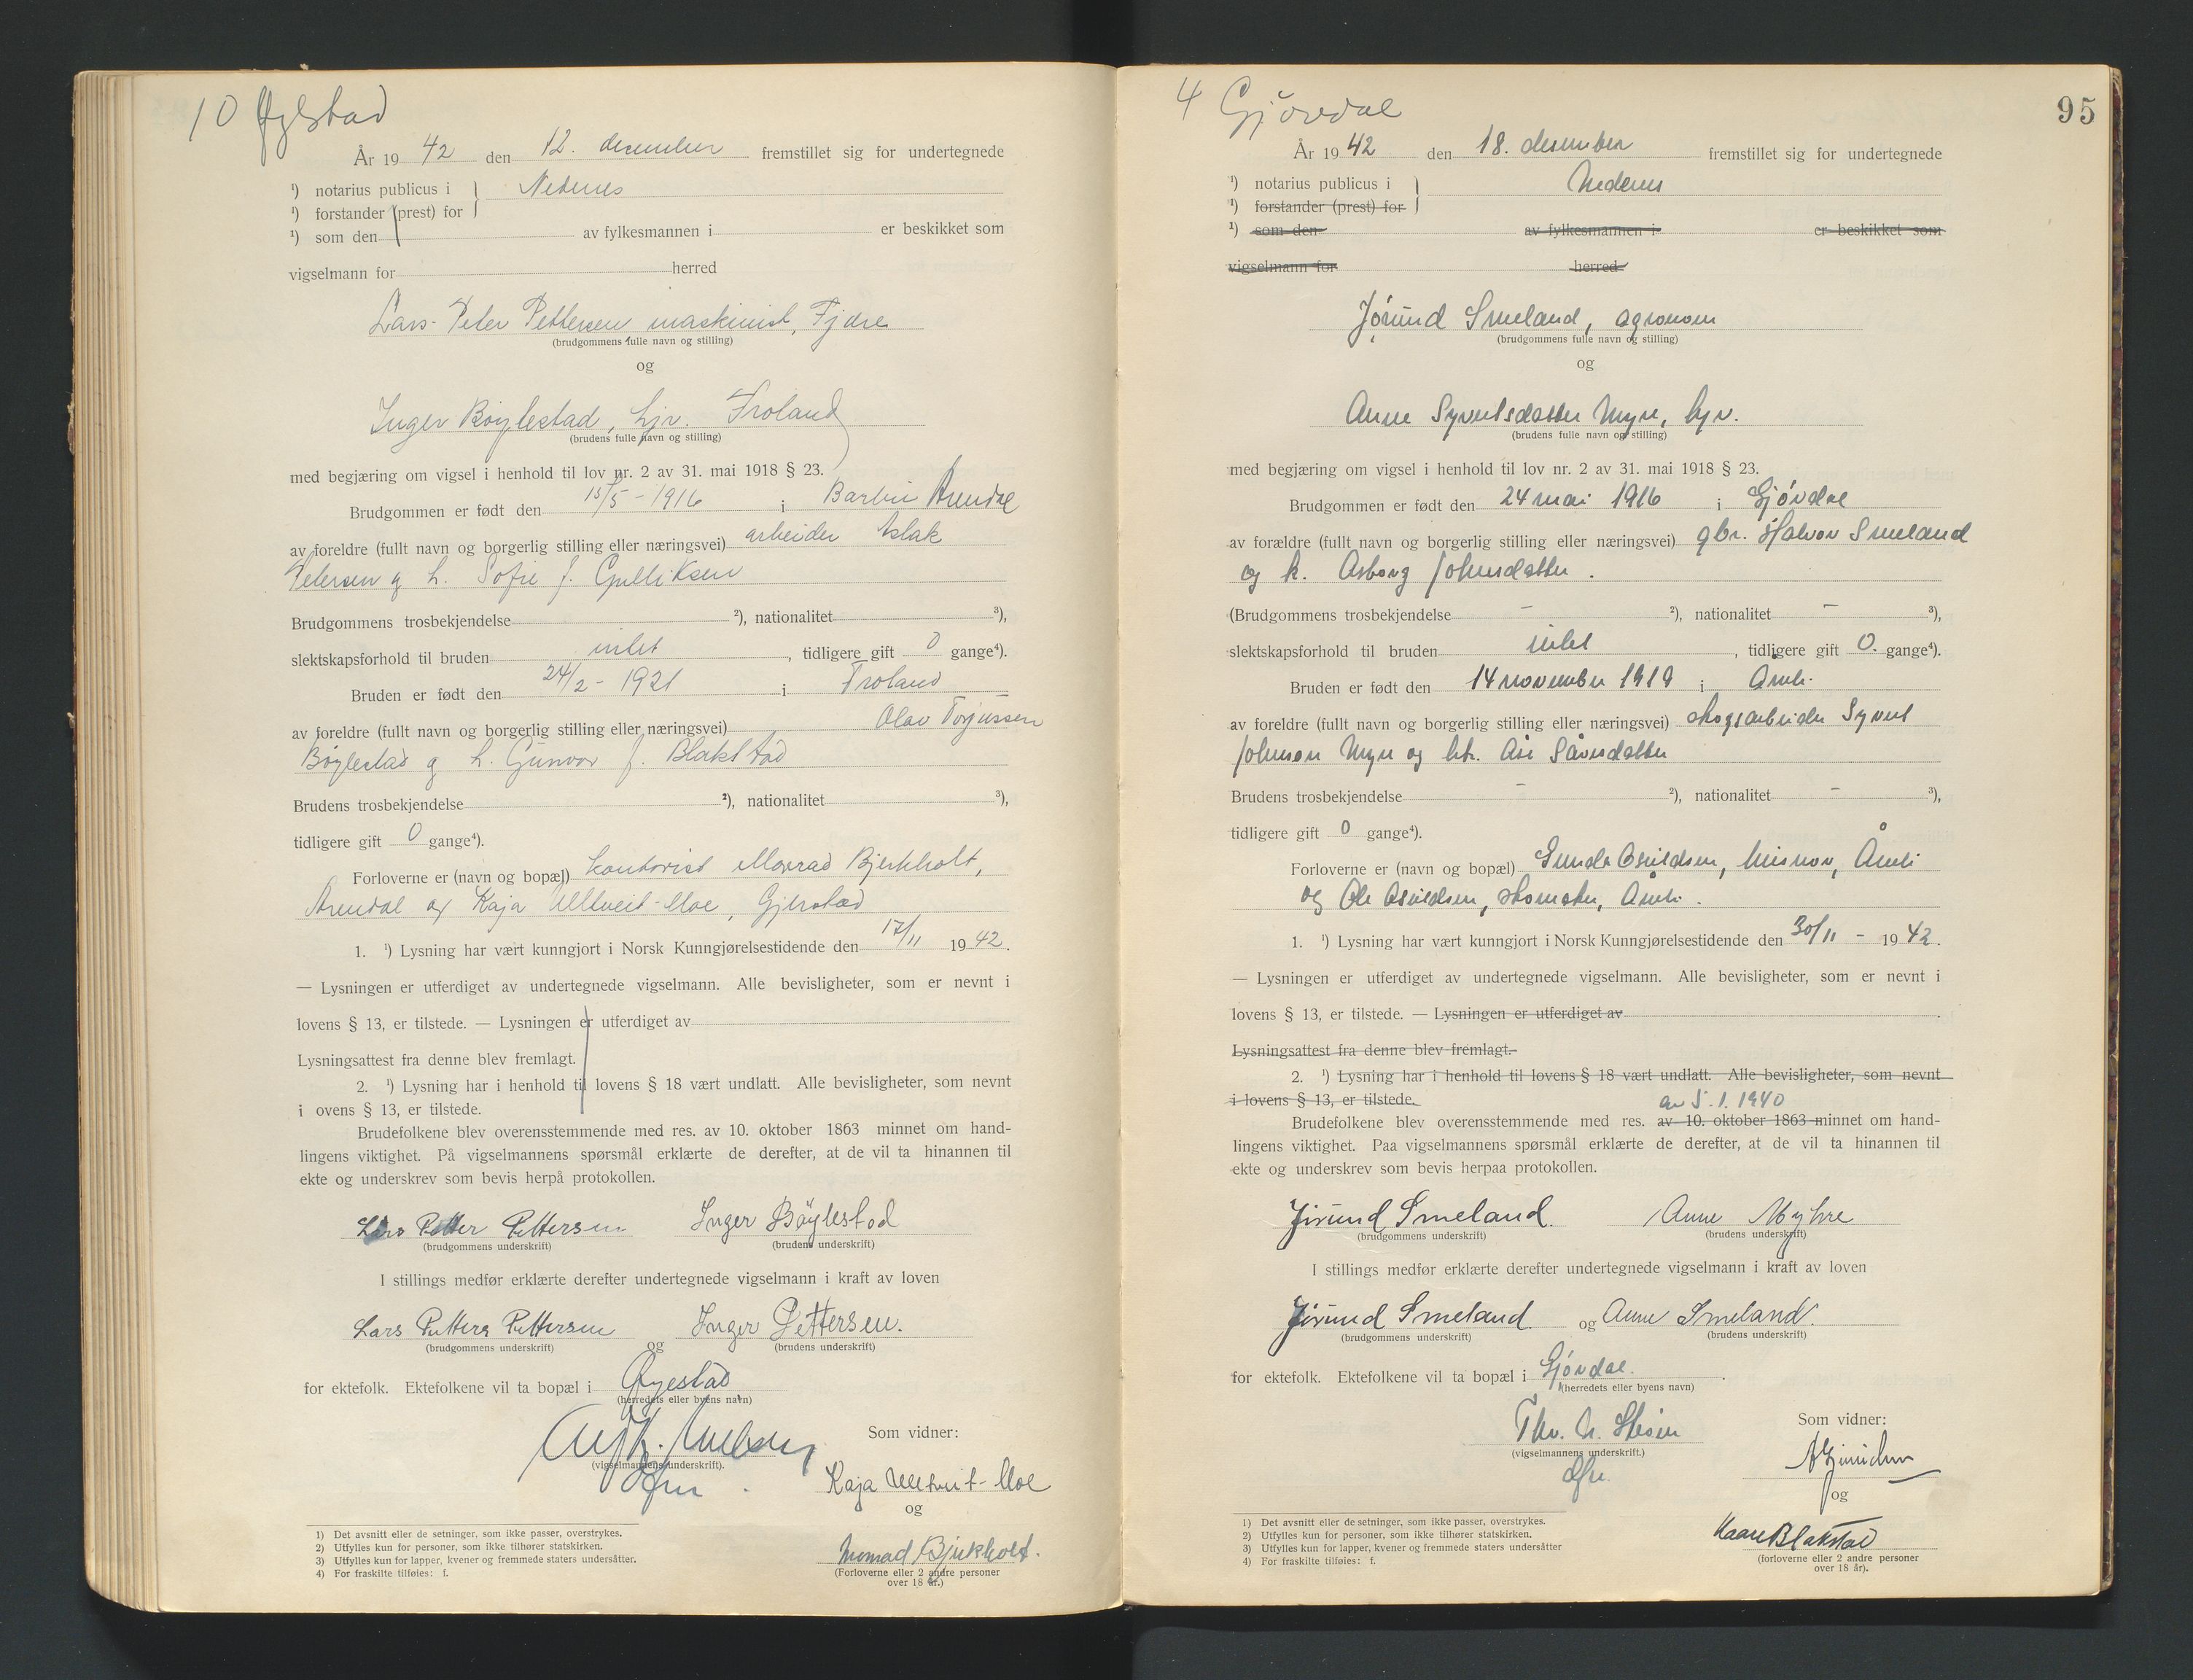 10 Øyestad
År 19 42 den 12. december fremstillet sig for undertegnede
¹) notarius publicus i } Nedenes
¹) forstander (prest) for
¹) som den av fylkesmannen i er beskikket som
vigselmann for herred
Lars Peter Pettersen maskinist, Fjære
(brudgommens fulle navn og stilling)
og
Inger Bøylestad, hjv. Froland
(brudens fulle navn og stilling)
med begjæring om vigsel i henhold til lov nr. 2 av 31. mai 1918 § 23.
Brudgommen er født den 15/5 - 1916 i Barbu Arendal
av foreldre (fullt navn og borgerlig stilling eller næringsvei) arbeider Aslak
Petersen og h. Sofie f. Gulliksen
Brudgommens trosbekjendelse ²), nationalitet ³),
slektskapsforhold til bruden intet, tidligere gift 0 gange⁴).
Bruden er født den 24/2 - 1921 i Froland
av foreldre (fullt navn og borgerlig stilling eller næringsvei) Olav Torjussen
Bøylestad og h. Gunvor f. Blakstad
Brudens trosbekjendelse ²), nationalitet ³),
tidligere gift 0 gange⁴).
Forloverne er (navn og bopæl) kontorist Bjerkholt,
Arendal og Kaja Ulltveit-Moe, Gjerstad
1. ¹) Lysning har vært kunngjort i Norsk Kunngjørelsestidende den 17/11 19 42.
— Lysningen er utferdiget av undertegnede vigselmann. Alle bevisligheter, som er nevnt i
lovens § 13, er tilstede. — Lysningen er utferdiget av
Lysningsattest fra denne blev fremlagt.
2. ¹) Lysning har i henhold til lovens § 18 vært undlatt. Alle bevisligheter, som nevnt
i ovens § 13, er tilstede.
Brudefolkene blev overensstemmende med res. av 10. oktober 1863 minnet om hand-
lingens viktighet. På vigselmannens spørsmål erklærte de derefter, at de vil ta hinannen til
ekte og underskrev som bevis herpå protokollen.
Lars Petter Pettersen Inger Bøylestad
(brudgommens underskrift) (brudens underskrift)
I stillings medfør erklærte derefter undertegnede vigselmann i kraft av loven
Lars Petter Pettersen og Inger Pettersen.
(brudgommens underskrift) (brudens underskrift)
for ektefolk. Ektefolkene vil ta bopæl i Øyestad
(herredets eller byens navn)
Som vidner:
(vigselmannens underskrift).
Kaja Ulltveit-Moe
og
Bjerkholt.
(Forloverne eller 2 andre personer
over 18 år.)
1) Det avsnitt eller de setninger, som ikke passer, overstrykes.
2) Utfylles kun for personer, som ikke tilhører statskirken.
3) Utfylles kun for lapper, kvener og fremmede staters undersåtter.
4) For fraskilte tilføies: f.
4 Gjövdal
95
År 19 42 den 18. desember fremstillet sig for undertegnede
¹) notarius publicus i } Nedenes
¹) forstander (prest) for
¹) som den av fylkesmannen i er beskikket som
vigselmann for herred
Jørund Smeland, agronom
(brudgommens fulle navn og stilling)
og
Anne Syvertsdatter Myre, hjv.
(brudens fulle navn og stilling)
med begjæring om vigsel i henhold til lov nr. 2 av 31. mai 1918 § 23.
Brudgommen er født den 24 mai 1916 i Gjövdal
av forældre (fullt navn og borgerlig stilling eller næringsvei) gbr. Halvor Smeland
og h. Asborg Johnsdatter.
(Brudgommens trosbekjendelse - ²), nationalitet - ³),
slektskapsforhold til bruden intet, tidligere gift 0. gange⁴).
Bruden er født den 14 november 1919 i Åmli.
av foreldre (fullt navn og borgerlig stilling eller næringsvei) skogsarbeider Syvert
Johnson Myre og h.
Brudens trosbekjendelse - ²), nationalitet - ³),
tidligere gift 0 gange⁴).
Forloverne er (navn og bopæl) Åmli
og Ole skomaker, Åmli.
1. ¹) Lysning har vært kunngjort i Norsk Kunngjørelsestidende den 30/11 - 19 42.
— Lysningen er utferdiget av undertegnede vigselmann. Alle bevisligheter, som er nevnt i
lovens § 13, er tilstede. — Lysningen er utferdiget av
Lysningsattest fra denne blev fremlagt.
2. ¹) Lysning har i henhold til lovens § 18 vært undlatt. Alle bevisligheter, som nevnt
i lovens § 13, er tilstede.
av 5.1.1940
Brudefolkene blev overensstemmende med res. av 10. oktober 1863 minnet om hand-
lingens viktighet. Paa vigselmannens spørsmål erklærte de derefter, at de vil ta hinannen til
ekte og underskrev som bevis herpaa protokollen.
Jörund Smeland. Anne Myhre
(brudgommens underskrift) (brudens underskrift)
I stillings medfør erklærte derefter undertegnede vigselmann i kraft av loven
Jörund Smeland og Anne Smeland.
(brudgommens underskrift) (brudens underskrift)
for ektefolk. Ektefolkene vil ta bopæl i Gjövdal.
(herredets eller byens navn)
Som vidner:
(vigselmannens underskrift.)
og
Kaare Blakstad
(forloverne eller 2 andre personer
over 18 år).
1) Det avsnitt eller de setninger, som ikke passer, overstrykes.
2) Utfylles kun for personer, som ikke tilhører statskirken.
3) Utfylles kun for lapper, kvener og fremmede staters undersåtter
4) For fraskilte tilføies: f.